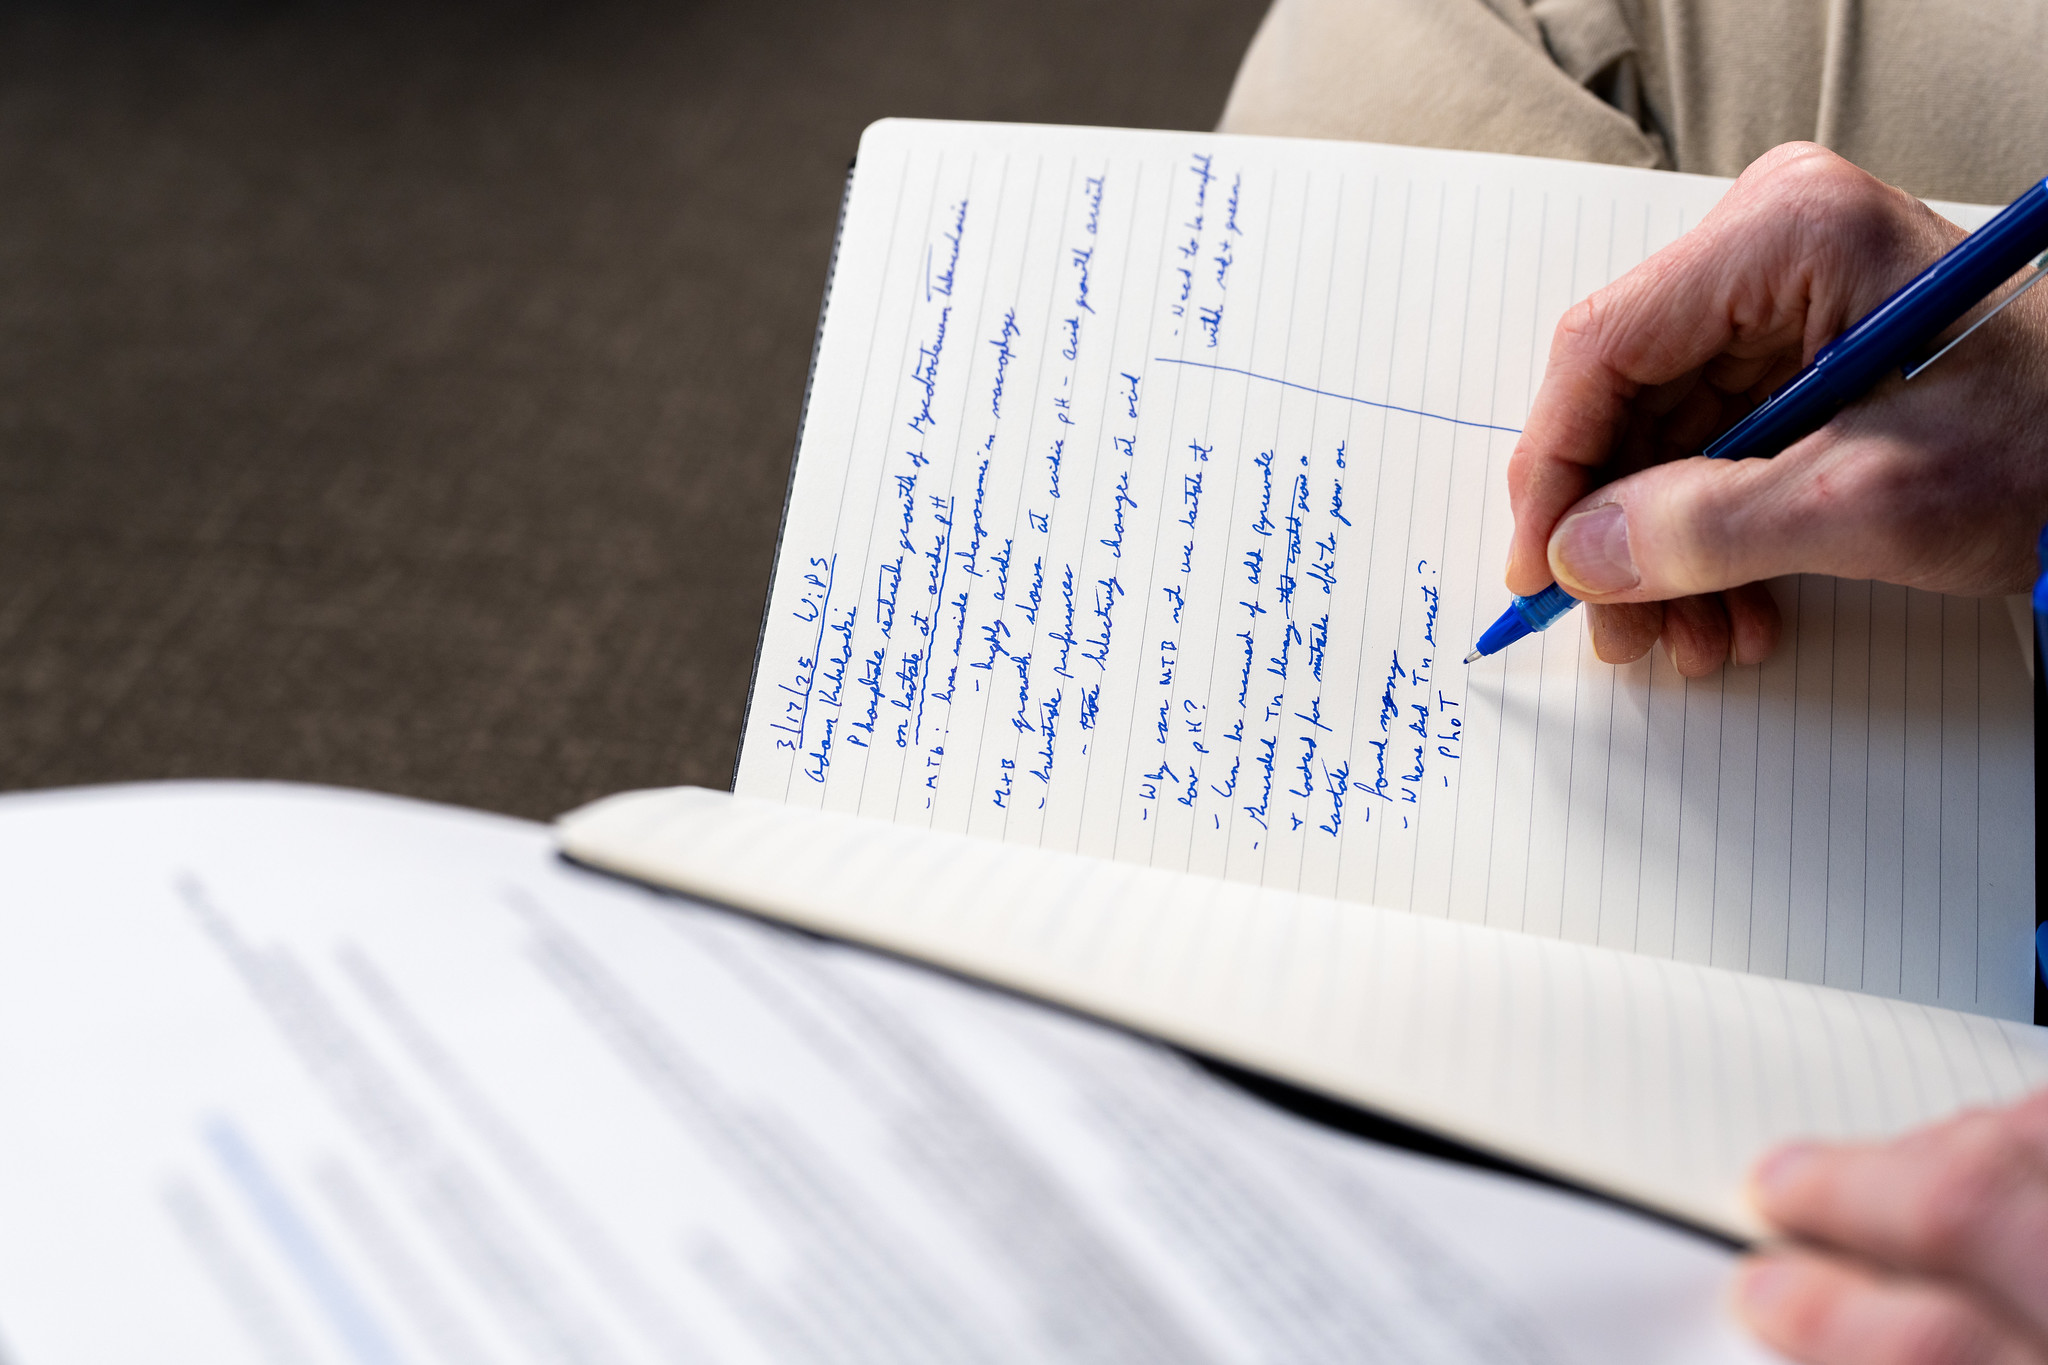 3/17/25 WiPS
Adam Kibiloski
Phosphate restricts growth of Mycobacterium tuberculosis
on lactate at acidic pH
- MTb: lives inside phagosomes in macrophage
- highly acidic
MtB growth slows at acidic pH - acid growth arrest
- substrate preferences
- selectively changes at acid
- Why can MTB not use lactate at
low pH?
- Can be rescued if add Pyruvate
- Generated Tn library that could grow a
+ looked for mutants able to grow on
lactate
- found many
- Where did Tn insert?
- PhoT
- Need to be careful
with red + green